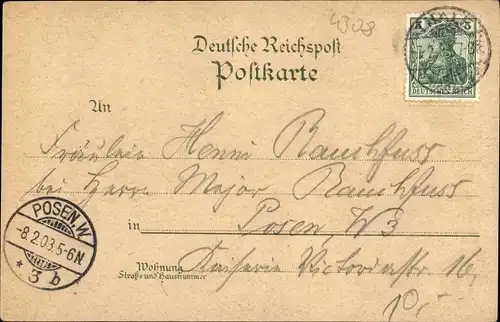 4308
5 5
DEUTSCHES REICH
Deutsche Reichspost
Postkarte
An
Fräulein Henni Rauchfuss
bei Herrn Major Rauchfuss
in Posen W3
POSEN.W
-8.2.03.5-6N
* 3 b
Wohnung Kaiserin Victoriastr 16
Straße und Hausnummer